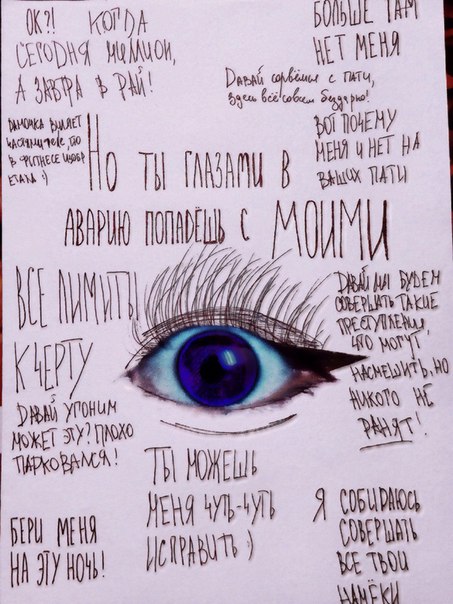 ОК?! КОГДА
СЕГОДНЯ МИЛЛИОН,
А ЗАВТРА В РАЙ!
БОЛЬШЕ ТАМ
НЕТ МЕНЯ
Давай сорвёмся с пати,
здесь всё совсем бездарно!
ВОТ ПОЧЕМУ
МЕНЯ И НЕТ НА
ВАШИХ ПАТИ
ДАМОЧКА ВИЛЯЕТ
В ФИТНЕСЕ
НО ТЫ ГЛАЗАМИ В
АВАРИЮ ПОПАДЁШЬ С МОИМИ
ВСЕ ЛИМИТЫ
К ЧЕРТУ
ДАВАЙ МЫ БУДЕМ
СОВЕРШАТЬ ТАКИЕ
ПРЕСТУПЛЕНИЯ,
ЧТО МОГУТ
НАСМЕШИТЬ, НО
НИКОГО НЕ
РАНЯТ!
ДАВАЙ УГОНИМ
МОЖЕТ ЭТУ? ПЛОХО
ПАРКОВАЛСЯ!
ТЫ МОЖЕШЬ
МЕНЯ ЧУТЬ-ЧУТЬ
ИСПРАВИТЬ :)
БЕРИ МЕНЯ
НА ЭТУ НОЧЬ!
Я СОБИРАЮСЬ
СОВЕРШАТЬ
ВСЕ ТВОИ
НАМЁКИ